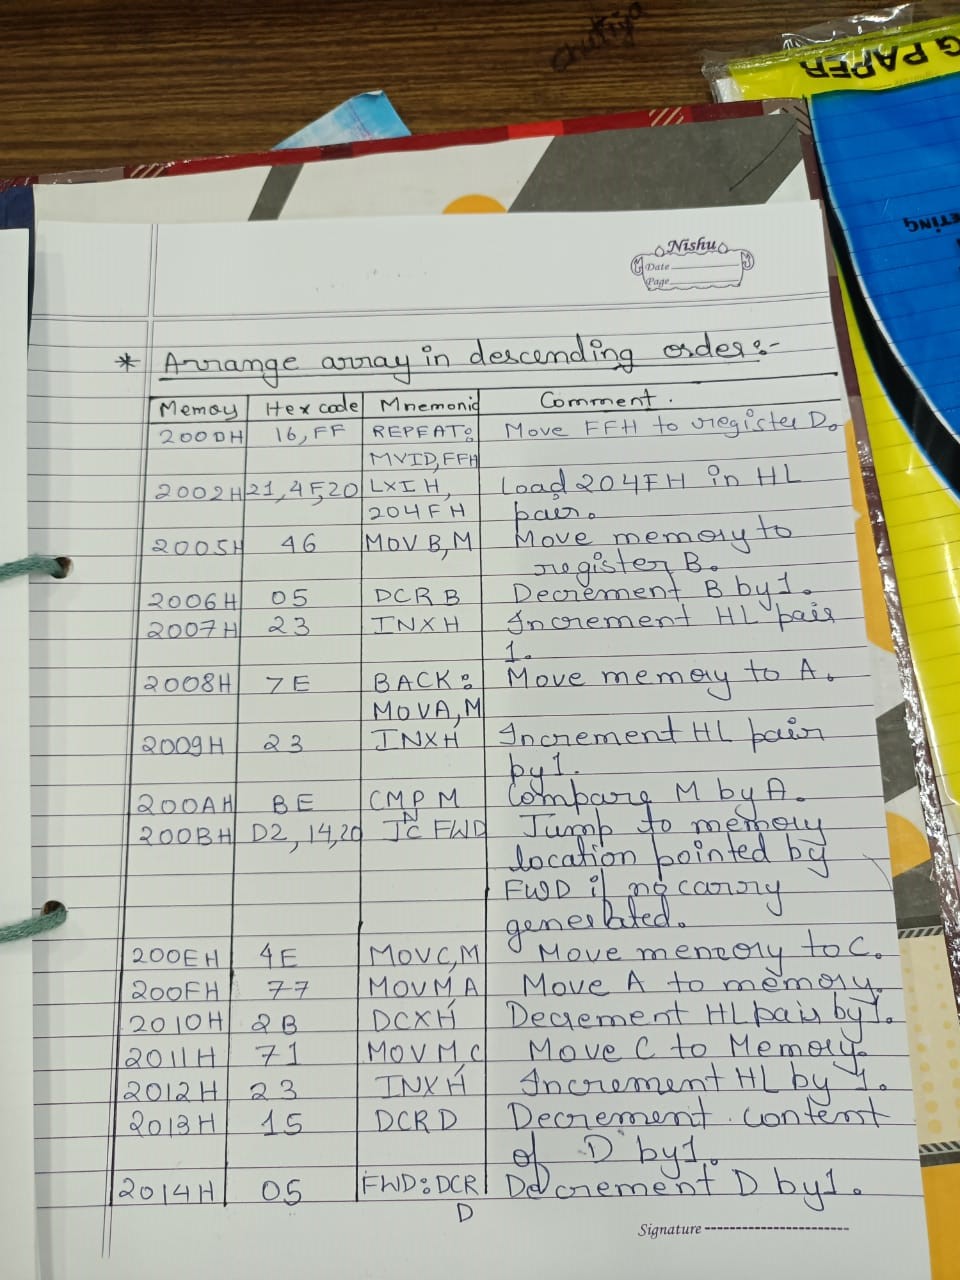 Chutiya
G PAPER
ETING
Nishu
Date
Page
* Arrange array in descending order:-
Memoy Hex code Mnemonic Comment.
2000H 16, FF REPEAT: Move FFH to register D.
MVID,FFH
2002H 21, 4F,20 LXI H, Load 204FH in HL
204FH pair.
2005H 46 MOV B, M Move memory to
register B.
2006H 05 DCR B Decrement B by 1.
2007H 23 INXH Increment HL pair
1.
2008H 7E BACK: Move memory to A.
MOVA, M
2009H 23 INXH Increment HL pair
by 1.
200AH BE CMP M Compare M by A.
200BH D2, 14,20 JNC FWD Jump to memory
location pointed by
FWD if no carry
generated.
200EH 4E MOVC, M Move memory to C.
200FH 77 MOVM, A Move A to memory.
2010H 2B DCXH Decrement HL pair by 1.
2011H 71 MOVM, C Move C to Memory.
2012H 23 INXH Increment HL by 1.
2013H 15 DCRD Decrement content
of D by 1.
2014H 05 FWD: DCR Decrement D by 1.
D
Signature